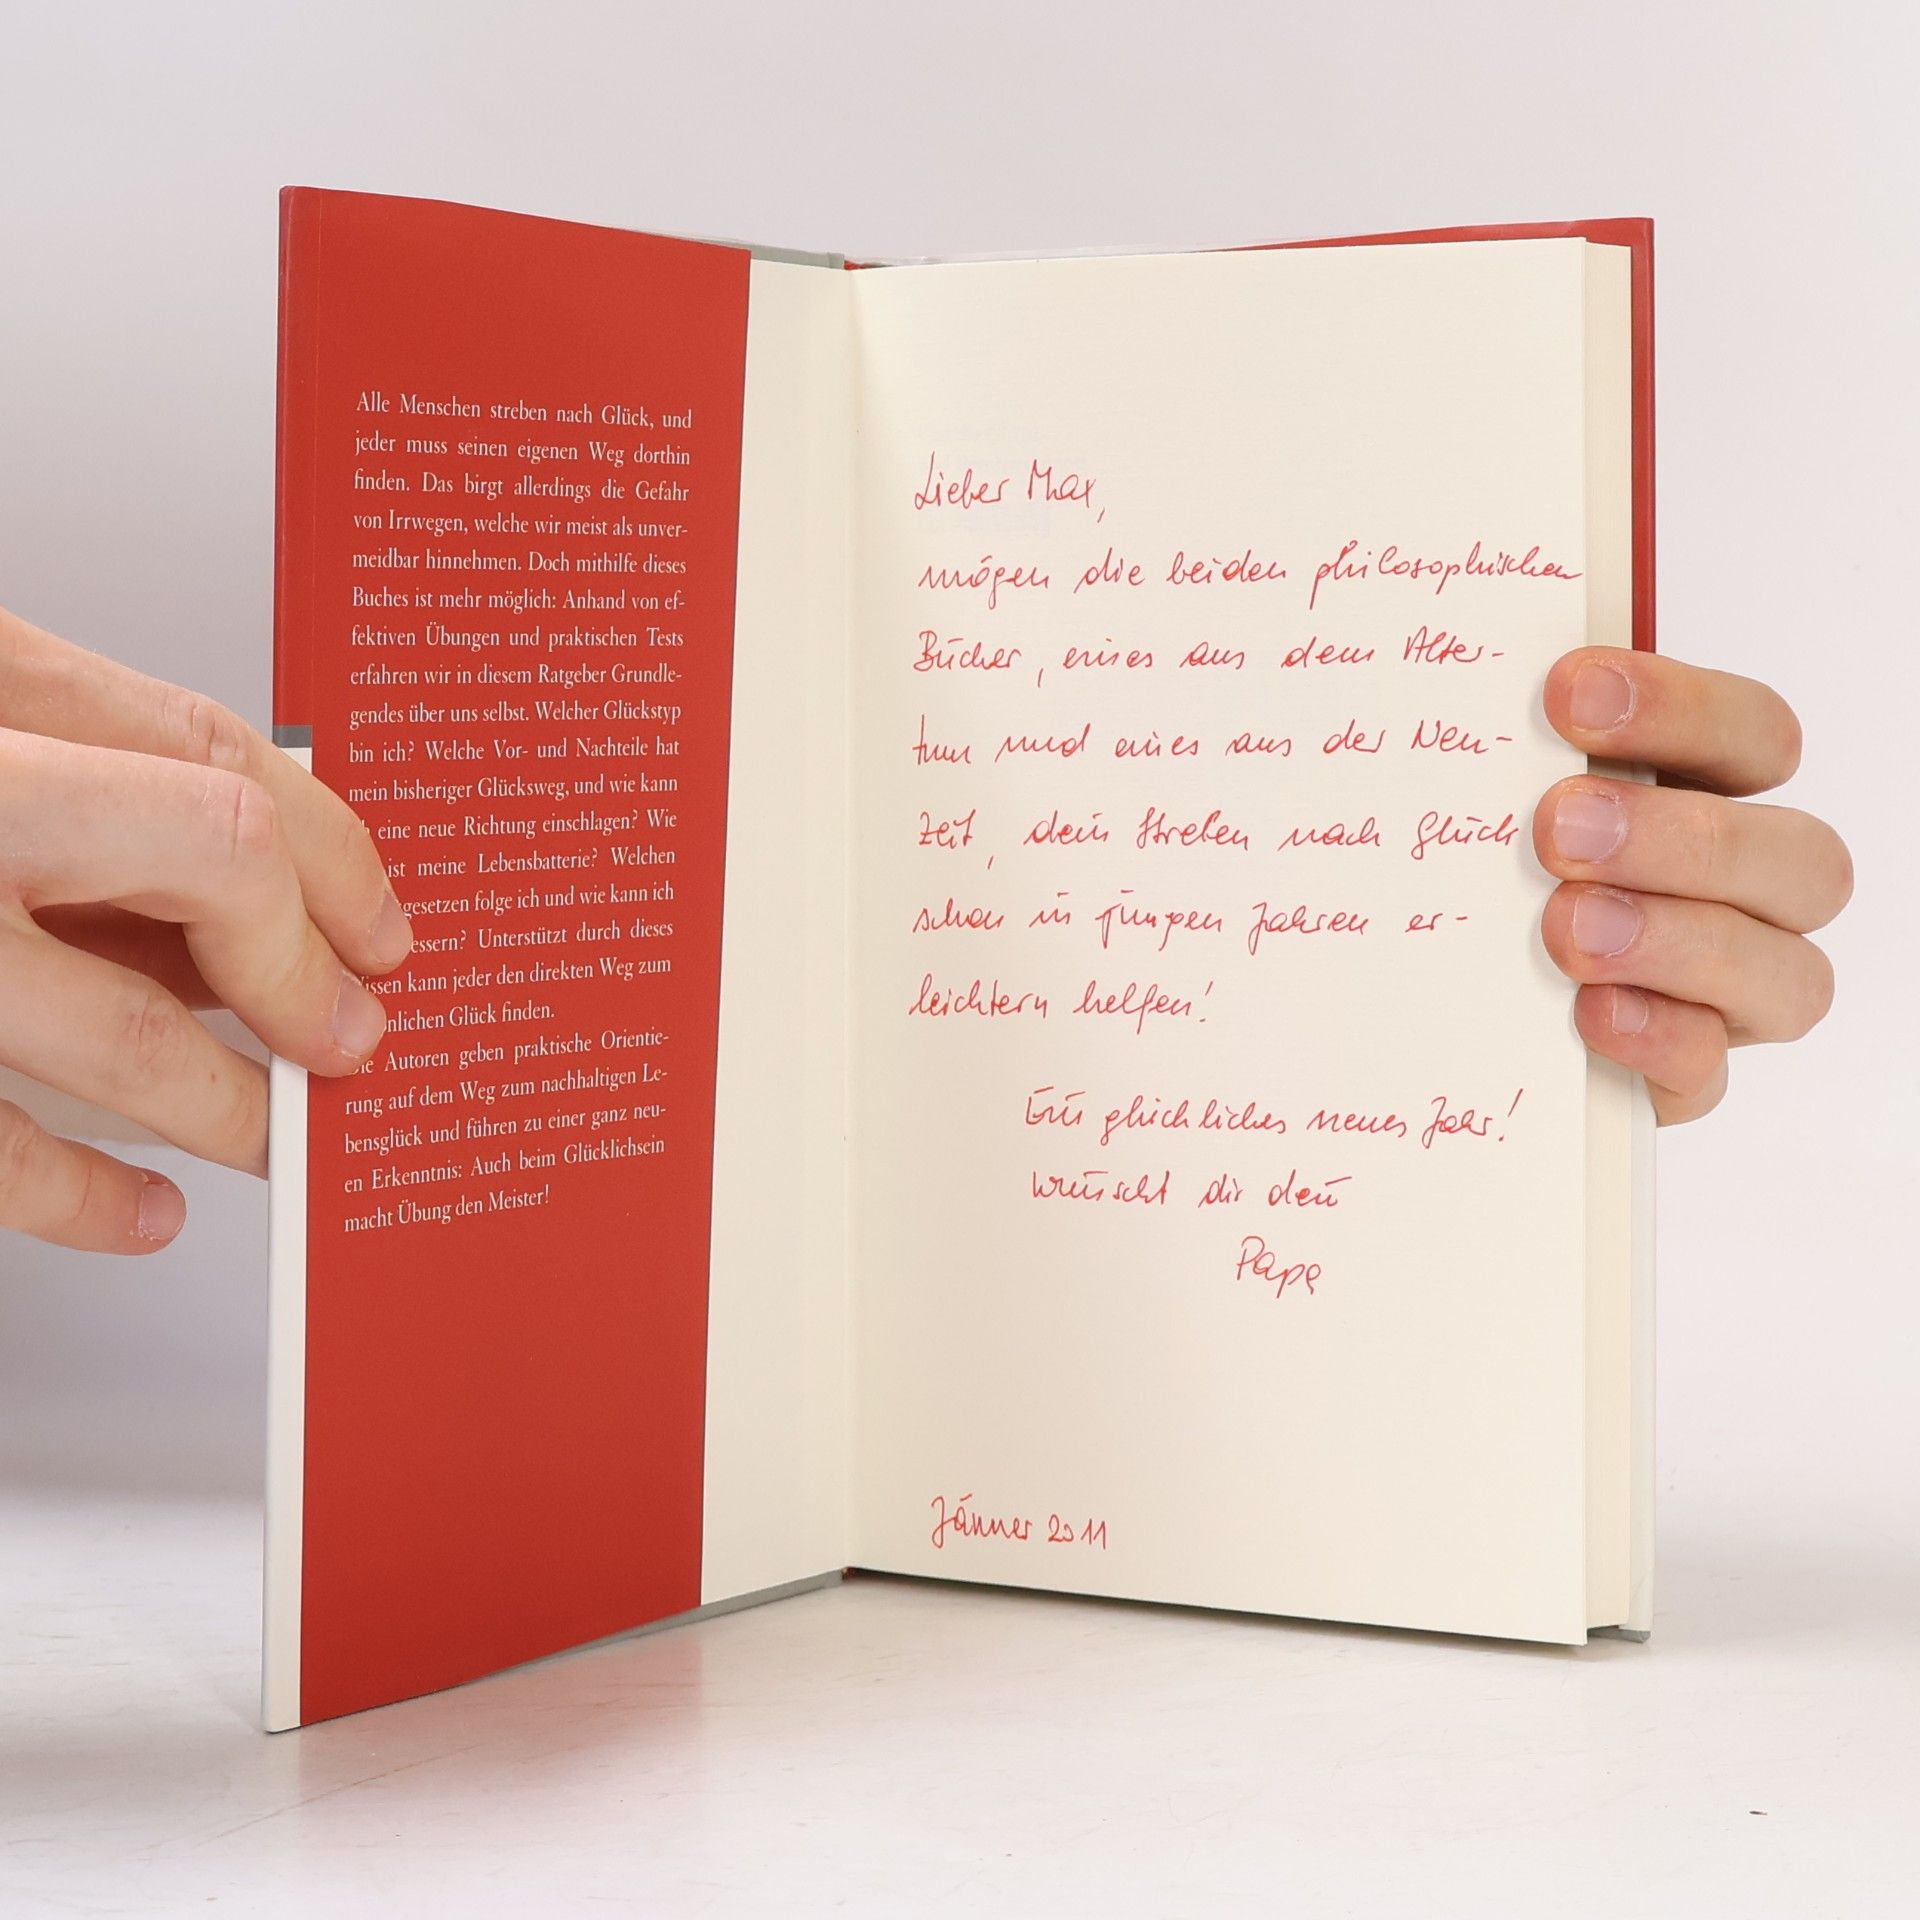 Alle Menschen streben nach Glück, und
jeder muss seinen eigenen Weg dorthin
finden. Das birgt allerdings die Gefahr
von Irrwegen, welche wir meist als unver-
meidbar hinnehmen. Doch mithilfe dieses
Buches ist mehr möglich: Anhand von ef-
fektiven Übungen und praktischen Tests
erfahren wir in diesem Ratgeber Grundle-
gendes über uns selbst. Welcher Glückstyp
bin ich? Welche Vor- und Nachteile hat
mein bisheriger Glücksweg, und wie kann
eine neue Richtung einschlagen? Wie
ist meine Lebensbatterie? Welchen
gesetzen folge ich und wie kann ich
essern? Unterstützt durch dieses
issen kann jeder den direkten Weg zum
nlichen Glück finden.
Die Autoren geben praktische Orientie-
rung auf dem Weg zum nachhaltigen Le-
bensglück und führen zu einer ganz neu-
en Erkenntnis: Auch beim Glücklichsein
macht Übung den Meister!
Lieber Max,
mögen die beiden philosophischen
Bücher, eines aus dem Alter-
tum und eines aus der Neu-
zeit, dein Streben nach Glück
schon in jungen Jahren er-
leichtern helfen!
Ein glückliches neues Jahr!
wünscht dir dein
Papa
Jänner 2011